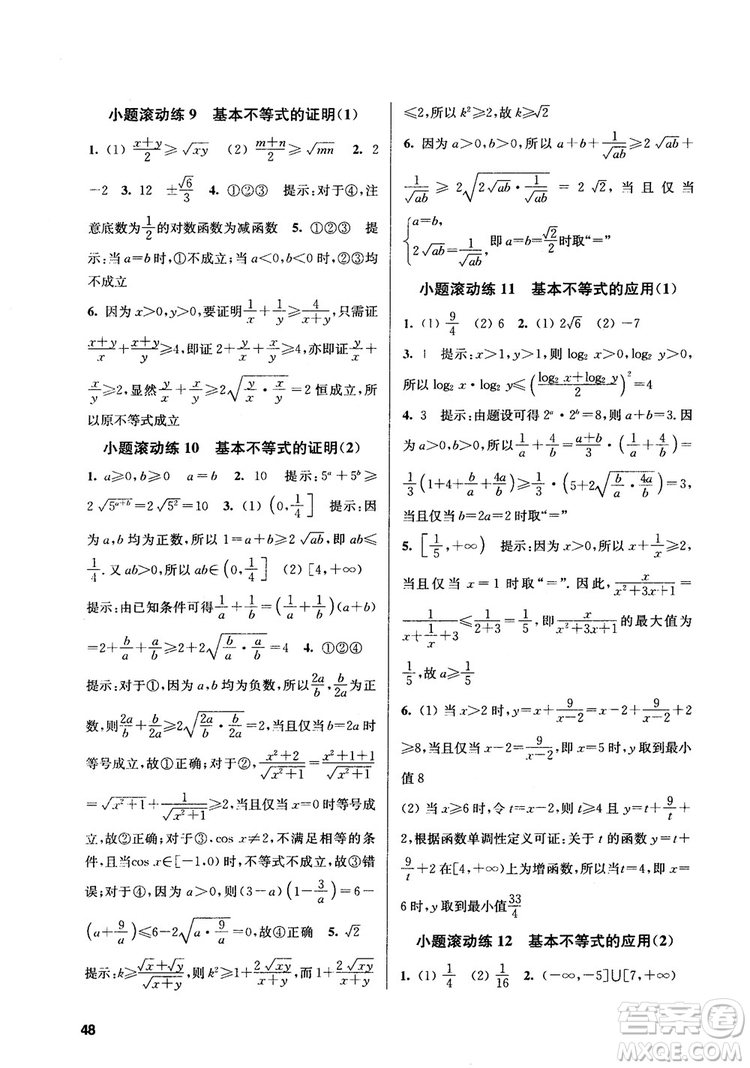 小题滚动练 9　基本不等式的证明(1)
1. (1) $\frac{x+y}{2}$≥$\sqrt{xy}$　(2) $\frac{m+n}{2}$≥$\sqrt{mn}$　2. 2
-2　3. 12　±$\frac{\sqrt{6}}{3}$　4. ①②③　提示:对于④,注
意底数为$\frac{1}{2}$的对数函数为减函数　5. ①②③　提
示:当 a=b 时,①不成立;当 a<0,b<0 时,②③均
不成立
6. 因为 x>0,y>0,要证明$\frac{1}{x}+\frac{1}{y}$≥$\frac{4}{x+y}$,只需证
$\frac{x+y}{x}+\frac{x+y}{y}$≥4,即证 2+$\frac{y}{x}+\frac{x}{y}$≥4,亦即证$\frac{y}{x}$+
$\frac{x}{y}$≥2,显然$\frac{y}{x}+\frac{x}{y}$≥2$\sqrt{\frac{y}{x}·\frac{x}{y}}$=2 恒成立,所
以原不等式成立
小题滚动练 10　基本不等式的证明(2)
1. a≥0,b≥0　a=b　2. 10　提示:$5^a+5^b$≥
2$\sqrt{5^{a+b}}$=2$\sqrt{5^2}$=10　3. (1) $\left(0,\frac{1}{4}\right]$　提示:因
为 a,b 均为正数,所以 1=a+b≥2$\sqrt{ab}$,即 ab≤
$\frac{1}{4}$. 又 ab>0,所以 ab∈$\left(0,\frac{1}{4}\right]$　(2) [4,+∞)
提示:由已知条件可得$\frac{1}{a}+\frac{1}{b}=\left(\frac{1}{a}+\frac{1}{b}\right)$(a+b)
=2+$\frac{b}{a}+\frac{a}{b}$≥2+2$\sqrt{\frac{b}{a}·\frac{a}{b}}$=4　4. ①②③
提示:对于①,因为 a,b 均为负数,所以$\frac{2a}{b}$,$\frac{b}{2a}$为正
数,则$\frac{2a}{b}+\frac{b}{2a}$≥2$\sqrt{\frac{2a}{b}·\frac{b}{2a}}$=2,当且仅当 b=2a 时
等号成立,故①错误;对于②,$\frac{x^2+2}{\sqrt{x^2+1}}=\frac{x^2+1+1}{\sqrt{x^2+1}}$
=$\sqrt{x^2+1}+\frac{1}{\sqrt{x^2+1}}$≥2,当且仅当 x=0 时等号成
立,故②错误;对于③,cos x≠2,不满足相等的条
件,且当cos x∈[-1,0)时,不等式不成立,故③错
误;对于④,因为 a>0,则(3-a)$\left(1-\frac{3}{a}\right)$=6-
$\left(a+\frac{9}{a}\right)$≤6-2$\sqrt{a·\frac{9}{a}}$=0,故④正确　5. $\sqrt{2}$
提示:k≥$\frac{\sqrt{x}+\sqrt{y}}{\sqrt{x+y}}$,所以 $k^2$≥1+$\frac{2\sqrt{xy}}{x+y}$,而 1+$\frac{2\sqrt{xy}}{x+y}$
≤2,所以 $k^2$≥2,故 k≥$\sqrt{2}$
6. 因为 a>0,b>0,所以 a+b+$\frac{1}{\sqrt{ab}}$≥2$\sqrt{ab}$+
$\frac{1}{\sqrt{ab}}$≥2$\sqrt{2\sqrt{ab}·\frac{1}{\sqrt{ab}}}$=2$\sqrt{2}$,当且仅当
$\begin{cases}a=b,\\2\sqrt{ab}=\frac{1}{\sqrt{ab}},\end{cases}$即 a=b=$\frac{\sqrt{2}}{2}$时取“=”
小题滚动练 11　基本不等式的应用(1)
1. (1) $\frac{9}{4}$　(2) 6　2. (1) 2$\sqrt{6}$　(2) -7
3. 1　提示:x>1,y>1,所以 $\log_2$ x>0,$\log_2$ y>0,
所以 $\log_2$ x·$\log_2$ y≤$\left(\frac{\log_2 x+\log_2 y}{2}\right)^2$=4
4. 3　提示:由题设可得 $2^a·2^b$=8,则 a+b=3.又
a>0,b>0,所以$\frac{1}{a}+\frac{4}{b}=\frac{a+b}{3}·\left(\frac{1}{a}+\frac{4}{b}\right)$=
$\frac{1}{3}\left(1+4+\frac{b}{a}+\frac{4a}{b}\right)$≥$\frac{1}{3}\left(5+2\sqrt{\frac{b}{a}·\frac{4a}{b}}\right)$=3,
当且仅当 b=2a=2 时取“=”
5. $\left[\frac{1}{5},+∞\right)$　提示:因为 x>0,所以 x+$\frac{1}{x}$≥2,
当且仅当 x=1 时取“=”. 因此,$\frac{x}{x^2+3x+1}$=
$\frac{1}{x+\frac{1}{x}+3}$≤$\frac{1}{2+3}=\frac{1}{5}$,即$\frac{x}{x^2+3x+1}$的最大值为
$\frac{1}{5}$,故 a≥$\frac{1}{5}$
6. (1) 当 x>2 时,y=x+$\frac{9}{x-2}$=x-2+$\frac{9}{x-2}$+2
≥8,当且仅当 x-2=$\frac{9}{x-2}$,即 x=5 时,y 取到最小
值 8
(2) 当 x≥6 时,令 x-2=t,则 t≥4,且 y=t+$\frac{9}{t}$+
2,根据函数单调性定义可证:关于 t 的函数 y=t+
$\frac{9}{t}$+2 在[4,+∞)上为增函数,所以当t=4,即 x=
6 时,y 取到最小值$\frac{33}{4}$
小题滚动练 12　基本不等式的应用(2)
1. (1) $\frac{1}{4}$　(2) $\frac{1}{16}$　2. (-∞,-5]∪[7,+∞)
48
答案圈
MXQE.COM